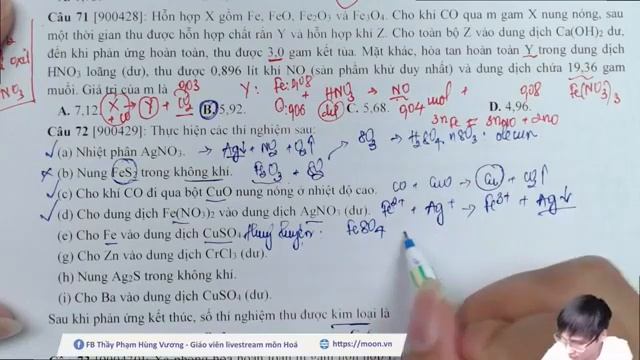 Câu 71 [900428]: Hỗn hợp X gồm Fe, FeO, Fe₂O₃ và Fe₃O₄. Cho khí CO qua m gam X nung nóng, sau
một thời gian thu được hỗn hợp chất rắn Y và hỗn hợp khí Z. Cho toàn bộ Z vào dung dịch Ca(OH)₂ dư,
đến khi phản ứng hoàn toàn, thu được 3,0 gam kết tủa. Mặt khác, hòa tan hoàn toàn Y trong dung dịch
HNO₃ loãng (dư), thu được 0,896 lít khí NO (sản phẩm khử duy nhất) và dung dịch chứa 19,36 gam
muối. Giá trị của m là 0,03 Y: Fe: 0,08 + HNO₃ → NO + Fe(NO₃)₃
O: 0,06 (dư) 0,04 mol 0,08
A. 7,12. X + CO → Y + CO₂ B. 5,92. C. 5,68. D. 4,96.
3nFe = 3nNO + 2nO
Câu 72 [900429]: Thực hiện các thí nghiệm sau:
(a) Nhiệt phân AgNO₃. → Ag↓ + NO₂ + O₂↑ SO₃ → H₂SO₄.nSO₃: oleum
(b) Nung FeS₂ trong không khí. Fe₂O₃ + SO₂
(c) Cho khí CO đi qua bột CuO nung nóng ở nhiệt độ cao. CO + CuO → Cu + CO₂↑
(d) Cho dung dịch Fe(NO₃)₂ vào dung dịch AgNO₃ (dư). Fe²⁺ + Ag⁺ → Fe³⁺ + Ag↓
(e) Cho Fe vào dung dịch CuSO₄ thuỷ luyện: FeSO₄
(g) Cho Zn vào dung dịch CrCl₃ (dư).
(h) Nung Ag₂S trong không khí.
(i) Cho Ba vào dung dịch CuSO₄ (dư).
Sau khi phản ứng kết thúc, số thí nghiệm thu được kim loại là
FB Thầy Phạm Hùng Vương - Giáo viên livestream môn Hoá https://moon.vn